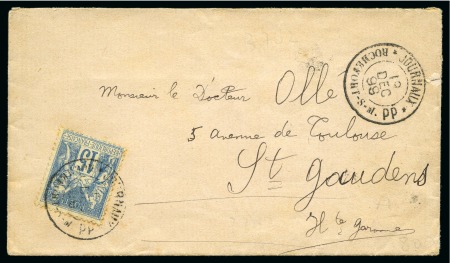 JOURNAUX PP
ROCHEFORT-S-M.
1e
DEC
99
Monsieur le Docteur Olle
5 avenue de Toulouse
St gaudens
Hte garonne
15